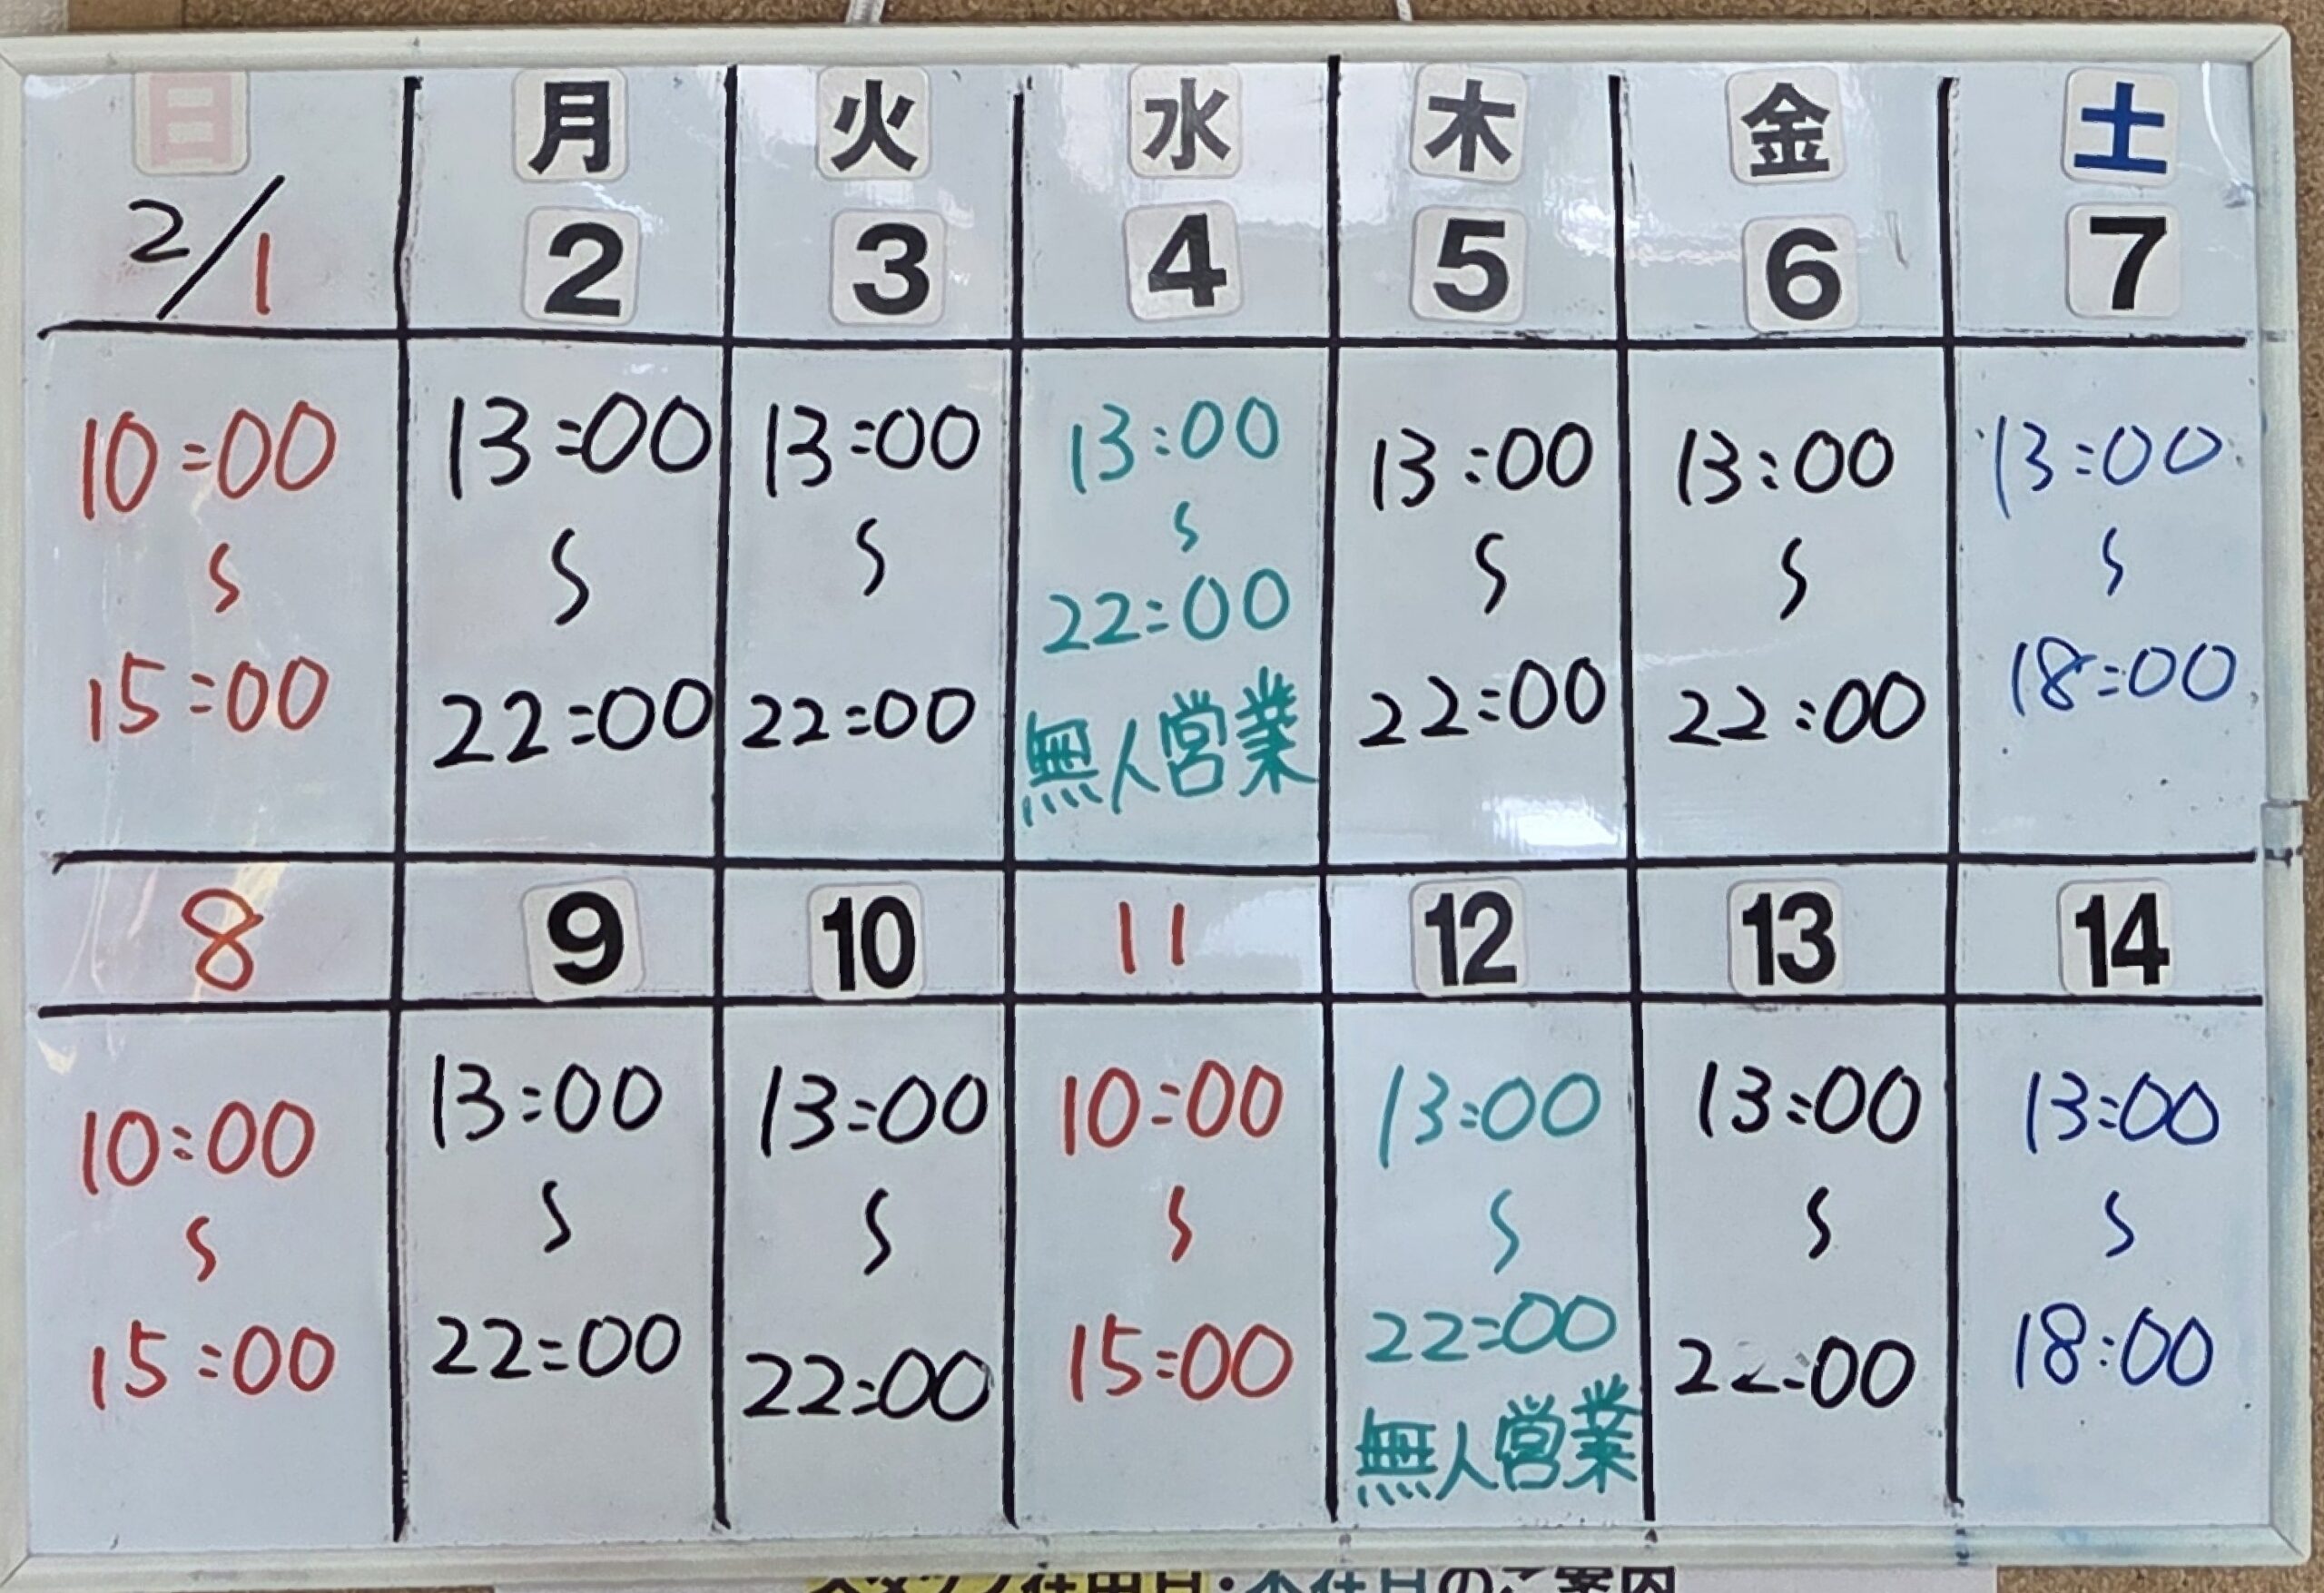 日 月 火 水 木 金 土
2/1 2 3 4 5 6 7
10:00 13:00 13:00 13:00 13:00 13:00 13:00
〜 〜 〜 〜 〜 〜 〜
15:00 22:00 22:00 22:00 22:00 22:00 18:00
無人営業
8 9 10 11 12 13 14
10:00 13:00 13:00 10:00 13:00 13:00 13:00
〜 〜 〜 〜 〜 〜 〜
15:00 22:00 22:00 15:00 22:00 22:00 18:00
無人営業
のご案内